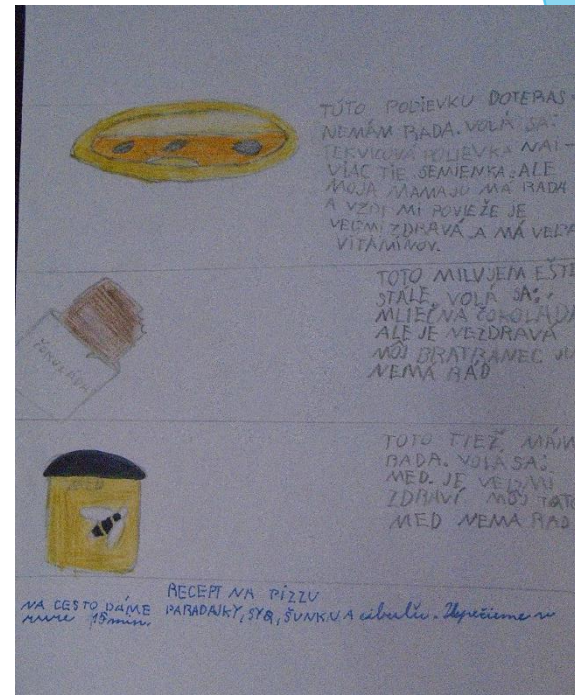 TÚTO POLIEVKU DOTERAS
NEMÁM RADA. VOLÁ SA:
TEKVICOVÁ POLIEVKA NAJ-
VIAC TIE SEMIENKA. ALE
MOJA MAMA JU MÁ RADA
A VŽDY MI POVIE ŽE JE
VEĽMI ZDRAVÁ A MÁ VEĽA
VITAMÍNOV.
TOTO MILUJEM EŠTE
STÁLE, VOLÁ SA:
MLIEČNA ČOKOLÁDA
ALE JE NEZDRAVÁ
MÔJ BRATRANEC JU
NEMÁ RÁD
ČOKOLÁDA
TOTO TIEŽ MÁM
RADA. VOLÁ SA:
MED. JE VEĽMI
ZDRAVÍ MÔJ TATO
MED NEMÁ RÁD
MED
RECEPT NA PIZZU
NA CESTO DÁME PARADAJKY, SYR, ŠUNKU A cibuľu. Upečieme v
rúre 15 min.